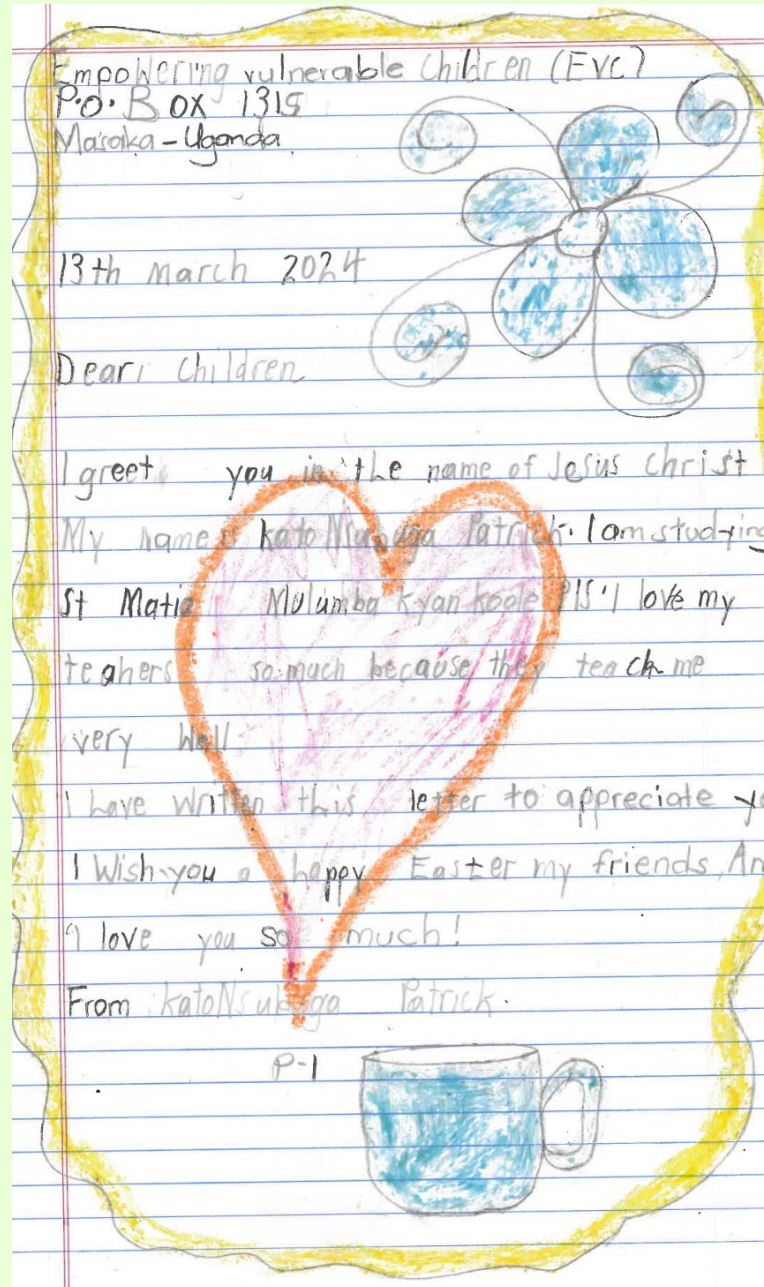 Empowering vulnerable Children (EVC)
P.O. Box 1315
Masaka-Uganda
13th march 2024
Dear, Children
I greet you in the name of Jesus Christ
My name is kato Nsubuga Patrick. I am studying
St Matia Mulumba Kyan koole P/S. I love my
teahers so much because they teach me
very Well
I have written this letter to appreciate yo
I Wish you a happy Easter my friends. An
I love you so much!
From kato Nsubuga Patrick.
P-1